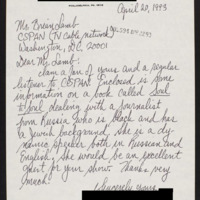 April 20, 1993
Mr. Brian Lamb
CSPAN (TV Cable network)
Washington, D.C. 20001
Dear Mr. Lamb:
I am a fan of yours and a regular
listener to CSPAN. Enclosed is some
information on a book called Soul
to Soul dealing with a journalist
from Russia who is black and has
a Jewish background. She is a dy-
namic speaker both in Russian and
English. She would be an excellent
guest for your show. Thanks very
much.
Sincerely yours,